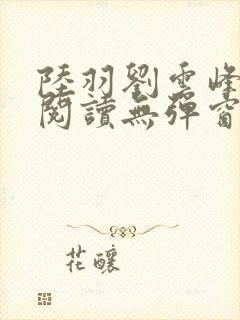 陸羽劉雲峰
閱讀無彈窗
花釀